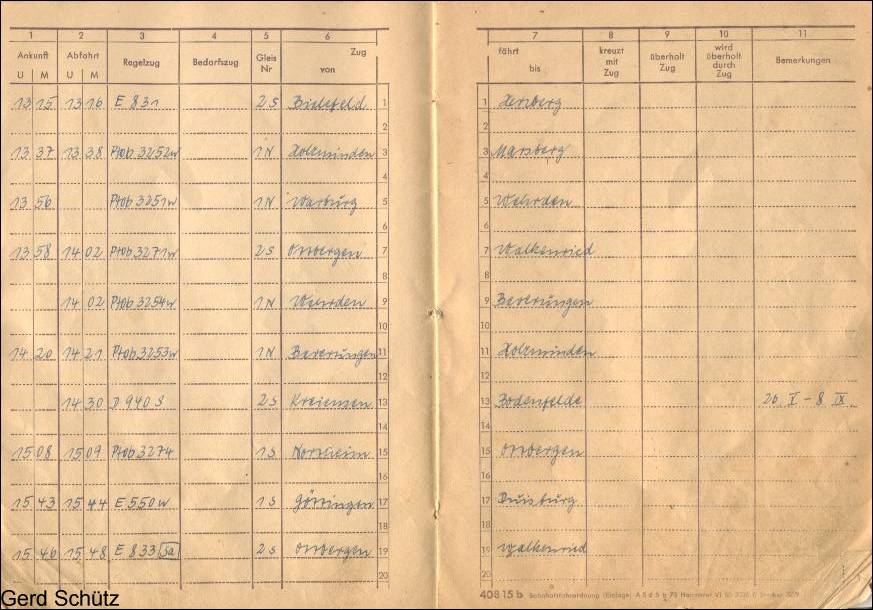 1 2 3 4 5 6 7 8 9 10 11
Ankunft Abfahrt Regelzug Bedarfszug Gleis Nr Zug von fährt bis kreuzt mit Zug überholt Zug wird überholt durch Zug Bemerkungen
U M U M
13 15 13 16 E 831 2S Bielefeld 1 1 Herzberg
2 2
13 37 13 38 Ptob 3252w 1N Holzminden 3 3 Marsberg
4 4
13 56 Ptob 3251w 1N Warburg 5 5 Wehrden
6 6
13 58 14 02 Ptob 3271w 2S Ottbergen 7 7 Walkenried
8 8
14 02 Ptob 3254w 1N Wehrden 9 9 Beverungen
10 10
14 20 14 21 Ptob 3253w 1N Beverungen 11 11 Holzminden
12 12
14 30 D 940 S 2S Kreiensen 13 13 Bodenfelde 26 V - 8 IX
14 14
15 08 15 09 Ptob 3274 1S Northeim 15 15 Ottbergen
16 16
15 43 15 44 E 550w 1S Göttingen 17 17 Duisburg
18 18
15 46 15 48 E 833 Sa 2S Ottbergen 19 19 Walkenried
20 20
408 15 b Bahnhofsfahrordnung (Einlage) Hannover
Gerd Schütz